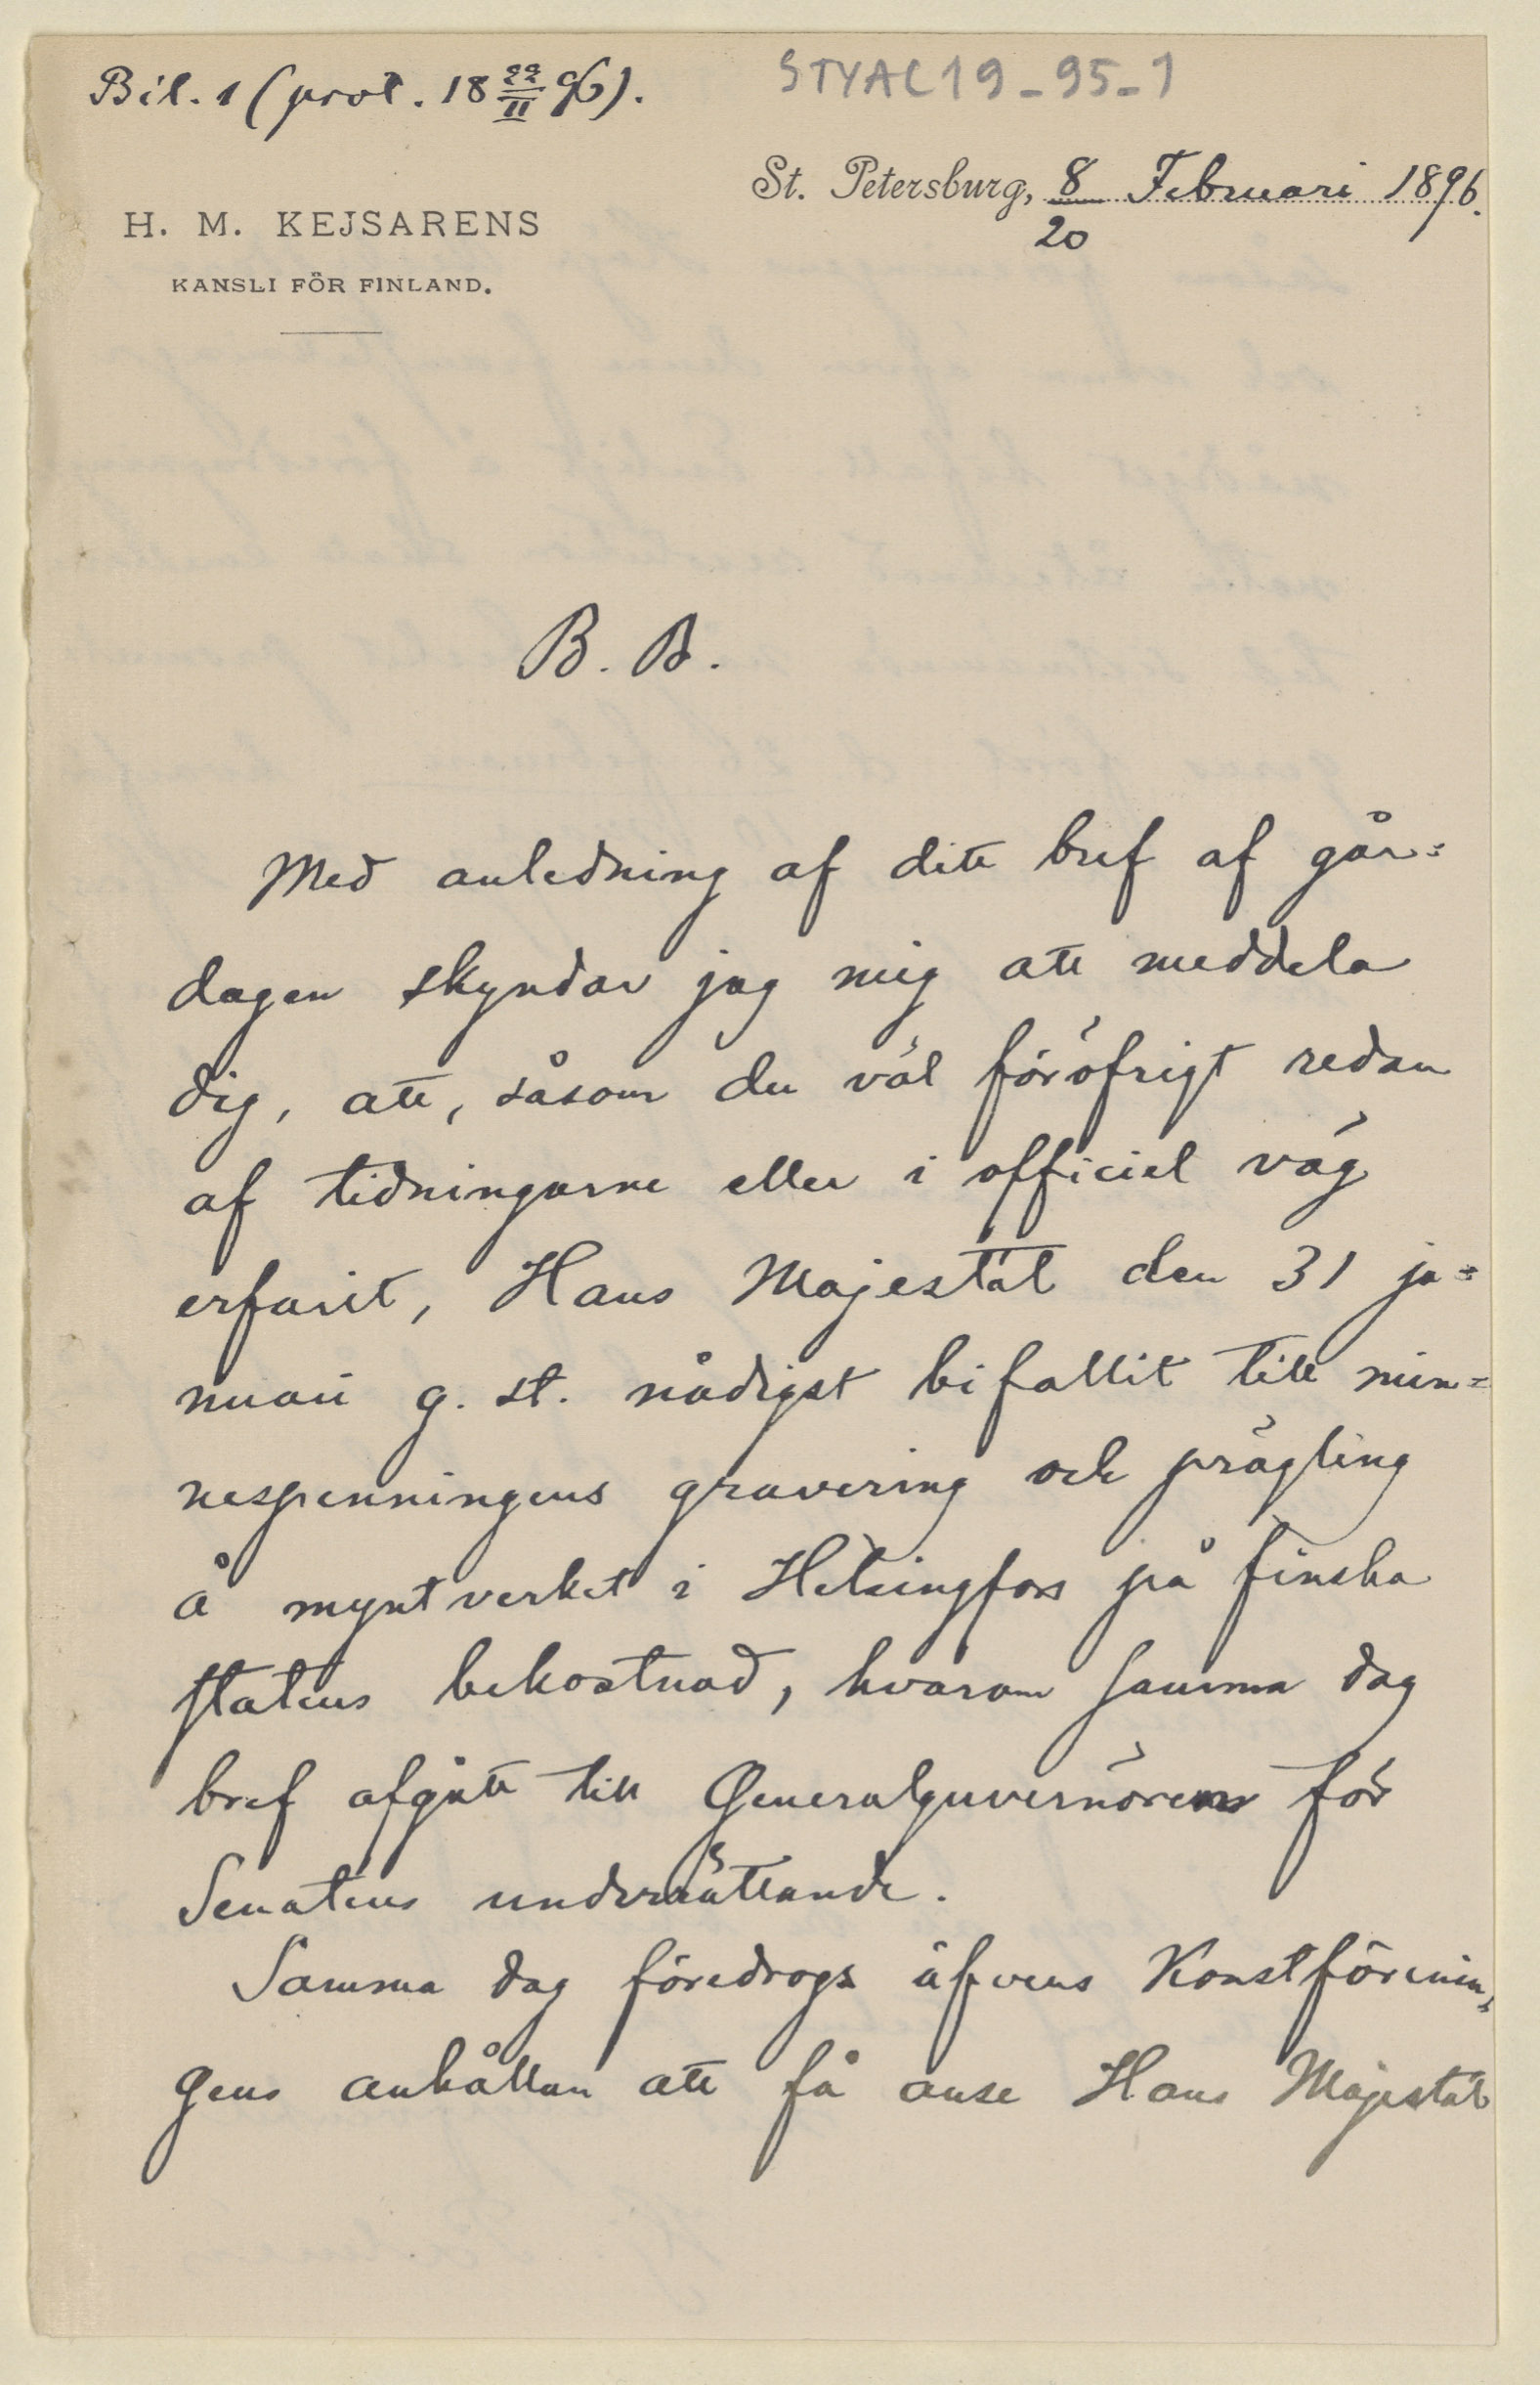 Bil. 1 (prot. 18 22/II 96).
STYAC19-95-1
St. Petersburg, 8/20 Februari 1896.
H. M. KEJSARENS
KANSLI FÖR FINLAND.
B. B.
Med anledning af ditt bref af går=
dagen skyndar jag mig att meddela
dig, att, såsom du väl föröfrigt redan
af tidningarne eller i officiel väg
erfarit, Hans Majestät den 31 ja=
nuari g. st. nådigst bifallit till min=
nespenningens gravering och prägling
å myntverket i Helsingfors på finska
statens bekostnad, hvarom samma dag
bref afgått till Generalguvernören för
Senatens underrättande.
Samma dag föredrogs äfvens Konstförenin=
gens anhållan att få anse Hans Majestät